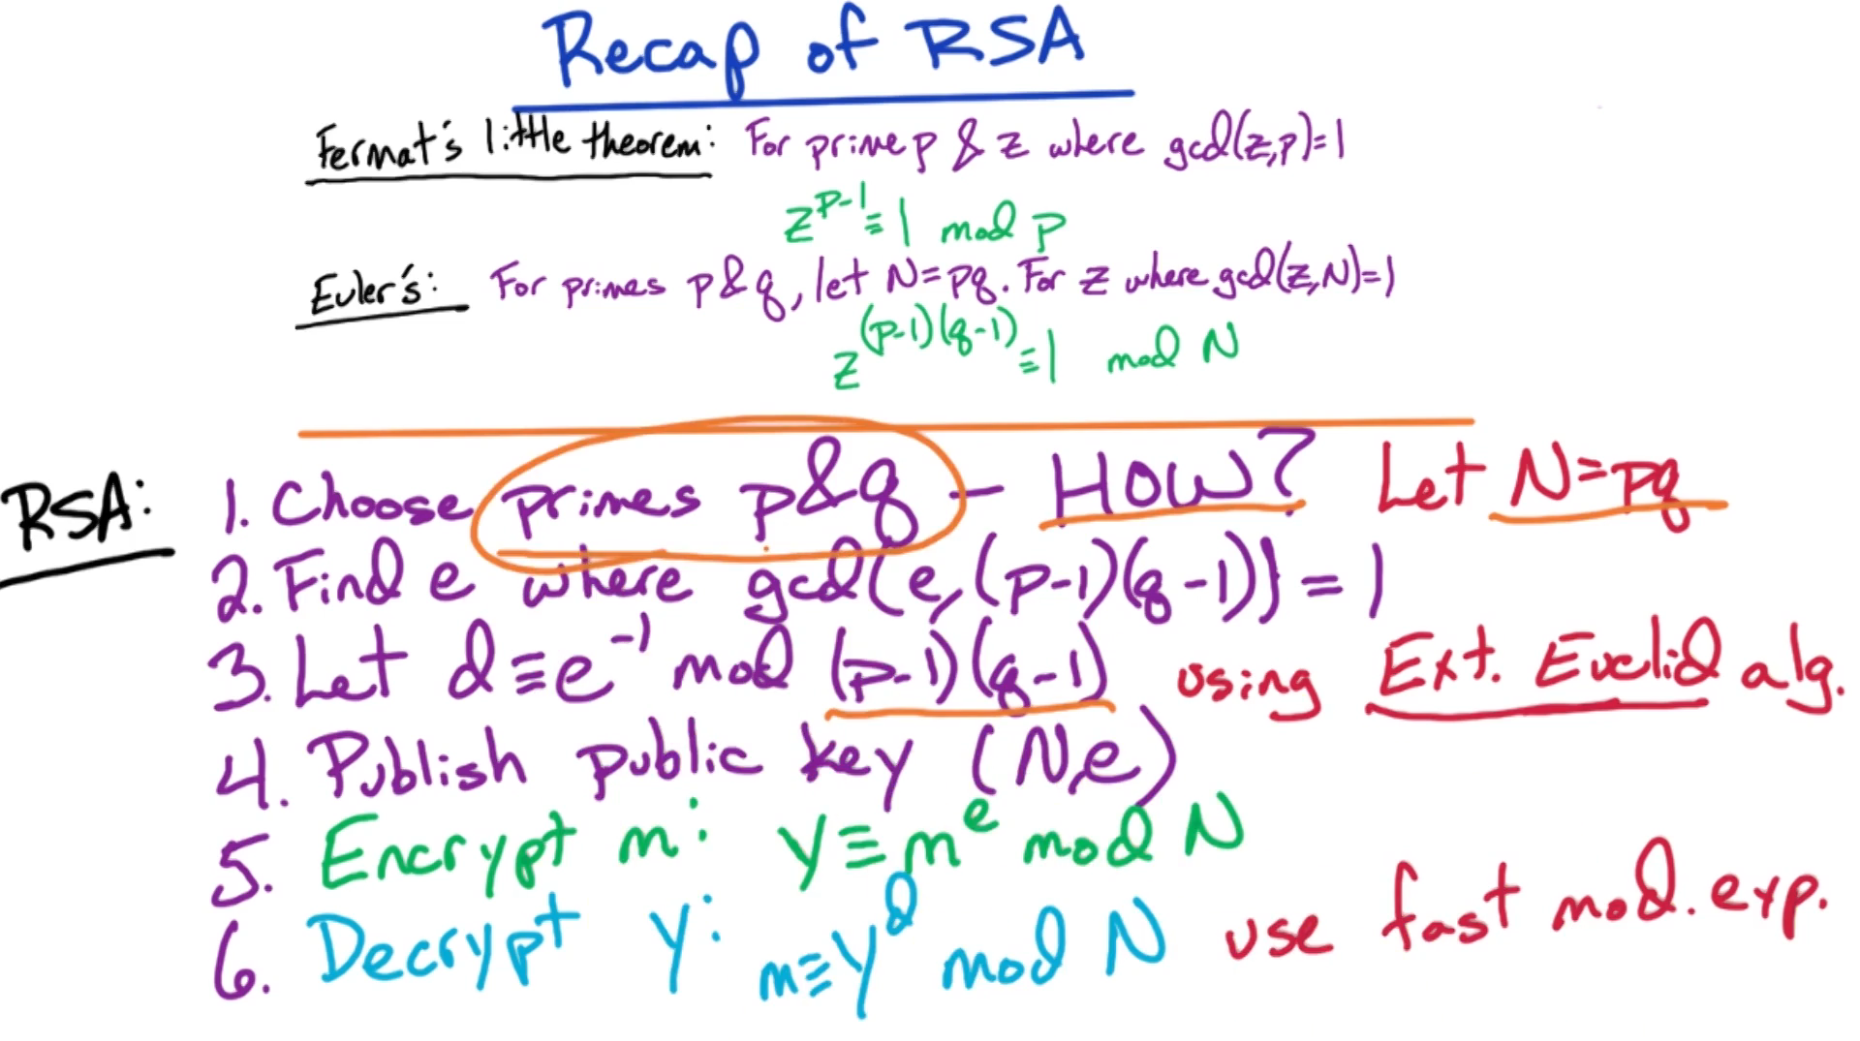 Recap of RSA
Fermat's little theorem: For prime p & z where gcd(z,p)=1
z^{p-1} ≡ 1 mod p
Euler's: For primes p&q, let N=pq. For z where gcd(z,N)=1
z^{(p-1)(q-1)} ≡ 1 mod N
RSA: 1. Choose primes p&q — HOW? Let N=pq
2. Find e where gcd(e,(p-1)(q-1)) = 1
3. Let d≡e^{-1} mod (p-1)(q-1) using Ext. Euclid alg.
4. Publish public key (N,e)
5. Encrypt m: y≡m^e mod N
6. Decrypt y: m≡y^d mod N use fast mod. exp.